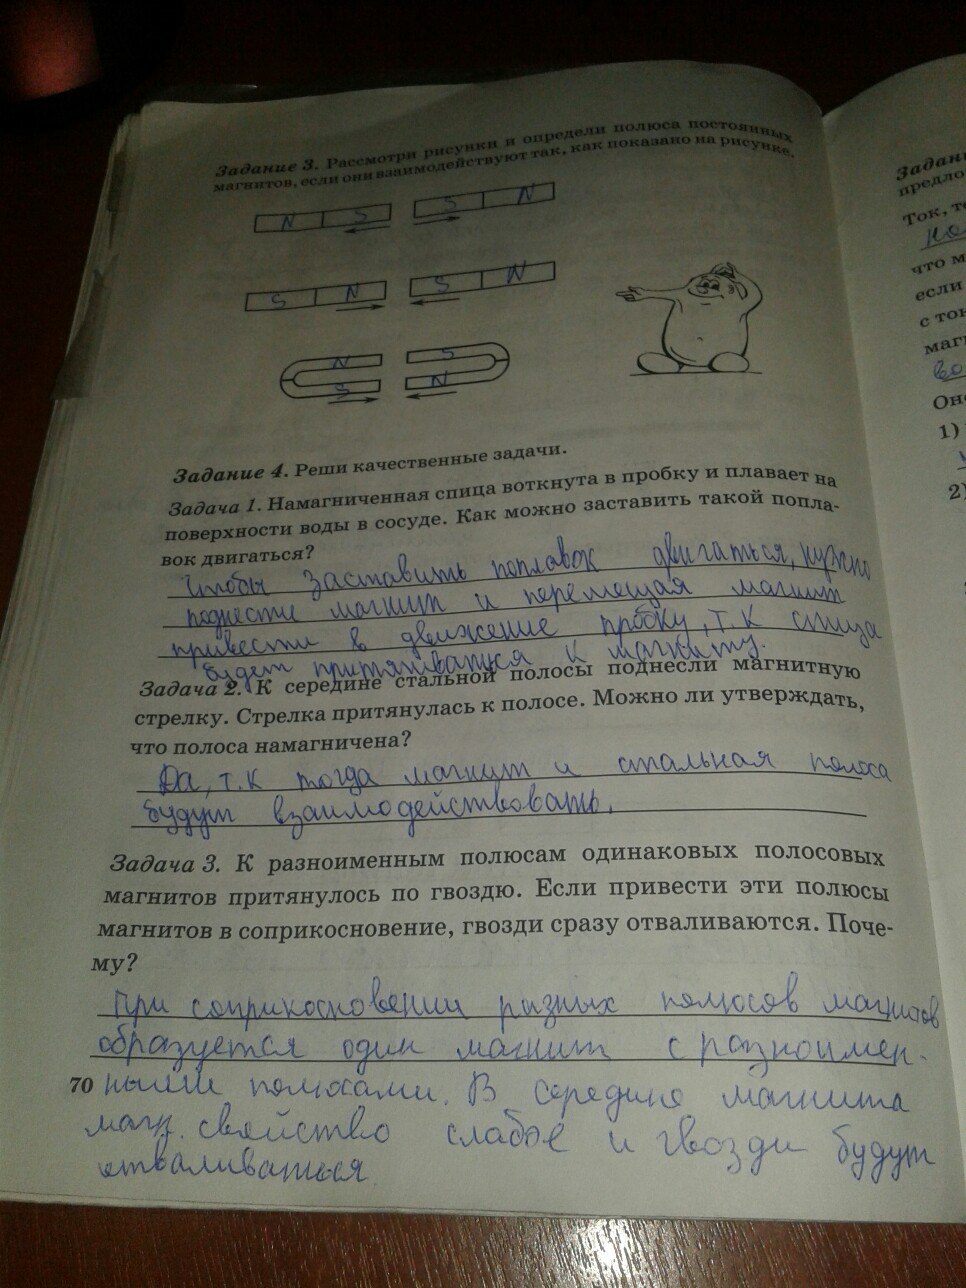 Задание 3. Рассмотри рисунки и определи полюса постоянных
магнитов, если они взаимодействуют так, как показано на рисунке.
N S S N
S N S N
N S
S N
Задание 4. Реши качественные задачи.
Задача 1. Намагниченная спица воткнута в пробку и плавает на
поверхности воды в сосуде. Как можно заставить такой попла-
вок двигаться?
Чтобы заставить поплавок двигаться, нужно
поднести магнит и перемещая магнит
привести в движение пробку, т.к спица
будет притягиваться к магниту.
Задача 2. К середине стальной полосы поднесли магнитную
стрелку. Стрелка притянулась к полосе. Можно ли утверждать,
что полоса намагничена?
Да, т.к тогда магнит и стальная полоса
будут взаимодействовать.
Задача 3. К разноименным полюсам одинаковых полосовых
магнитов притянулось по гвоздю. Если привести эти полюсы
магнитов в соприкосновение, гвозди сразу отваливаются. Поче-
му?
При соприкосновении разных полюсов магнитов
образуется один магнит с разноимен-
70 ными полюсами. В середине магнита
магн. свойство слабое и гвозди будут
отваливаться
Задани
предло
Ток, те
что м
если
с ток
магн
Оно
1)
2)